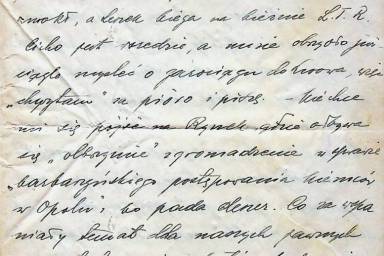 zmokł, a Lenek biega na bieżnie L.T.R.
Cicho jest wszędzie, a mnie obrzydło już
ciągle myśleć o
„chwytam” za pióro i piszę. – Nie chce
mi się pójść na Rynek gdzie odbywa
się „olbrzymie” zgromadzenie w sprawie
„barbarzyńskiego postępowania Niemców
w Opolu”, bo pada deszcz. Co za wspa
niały temat dla naszych